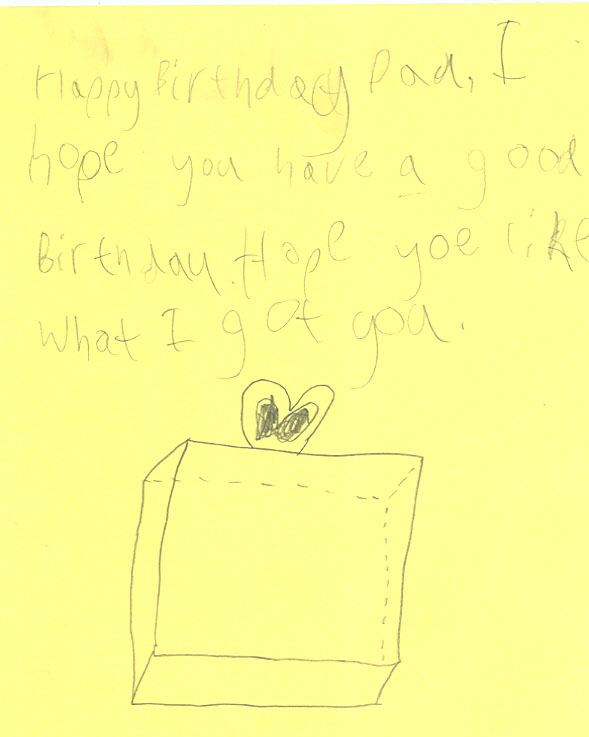 Happy Birthday Dad, I
hope you have a good
Birthday. Hope yoe like
what I got you.